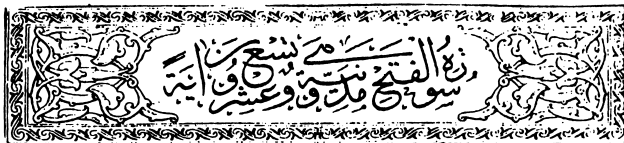 سورة الفتح مدنية وهي تسع وعشرون آية